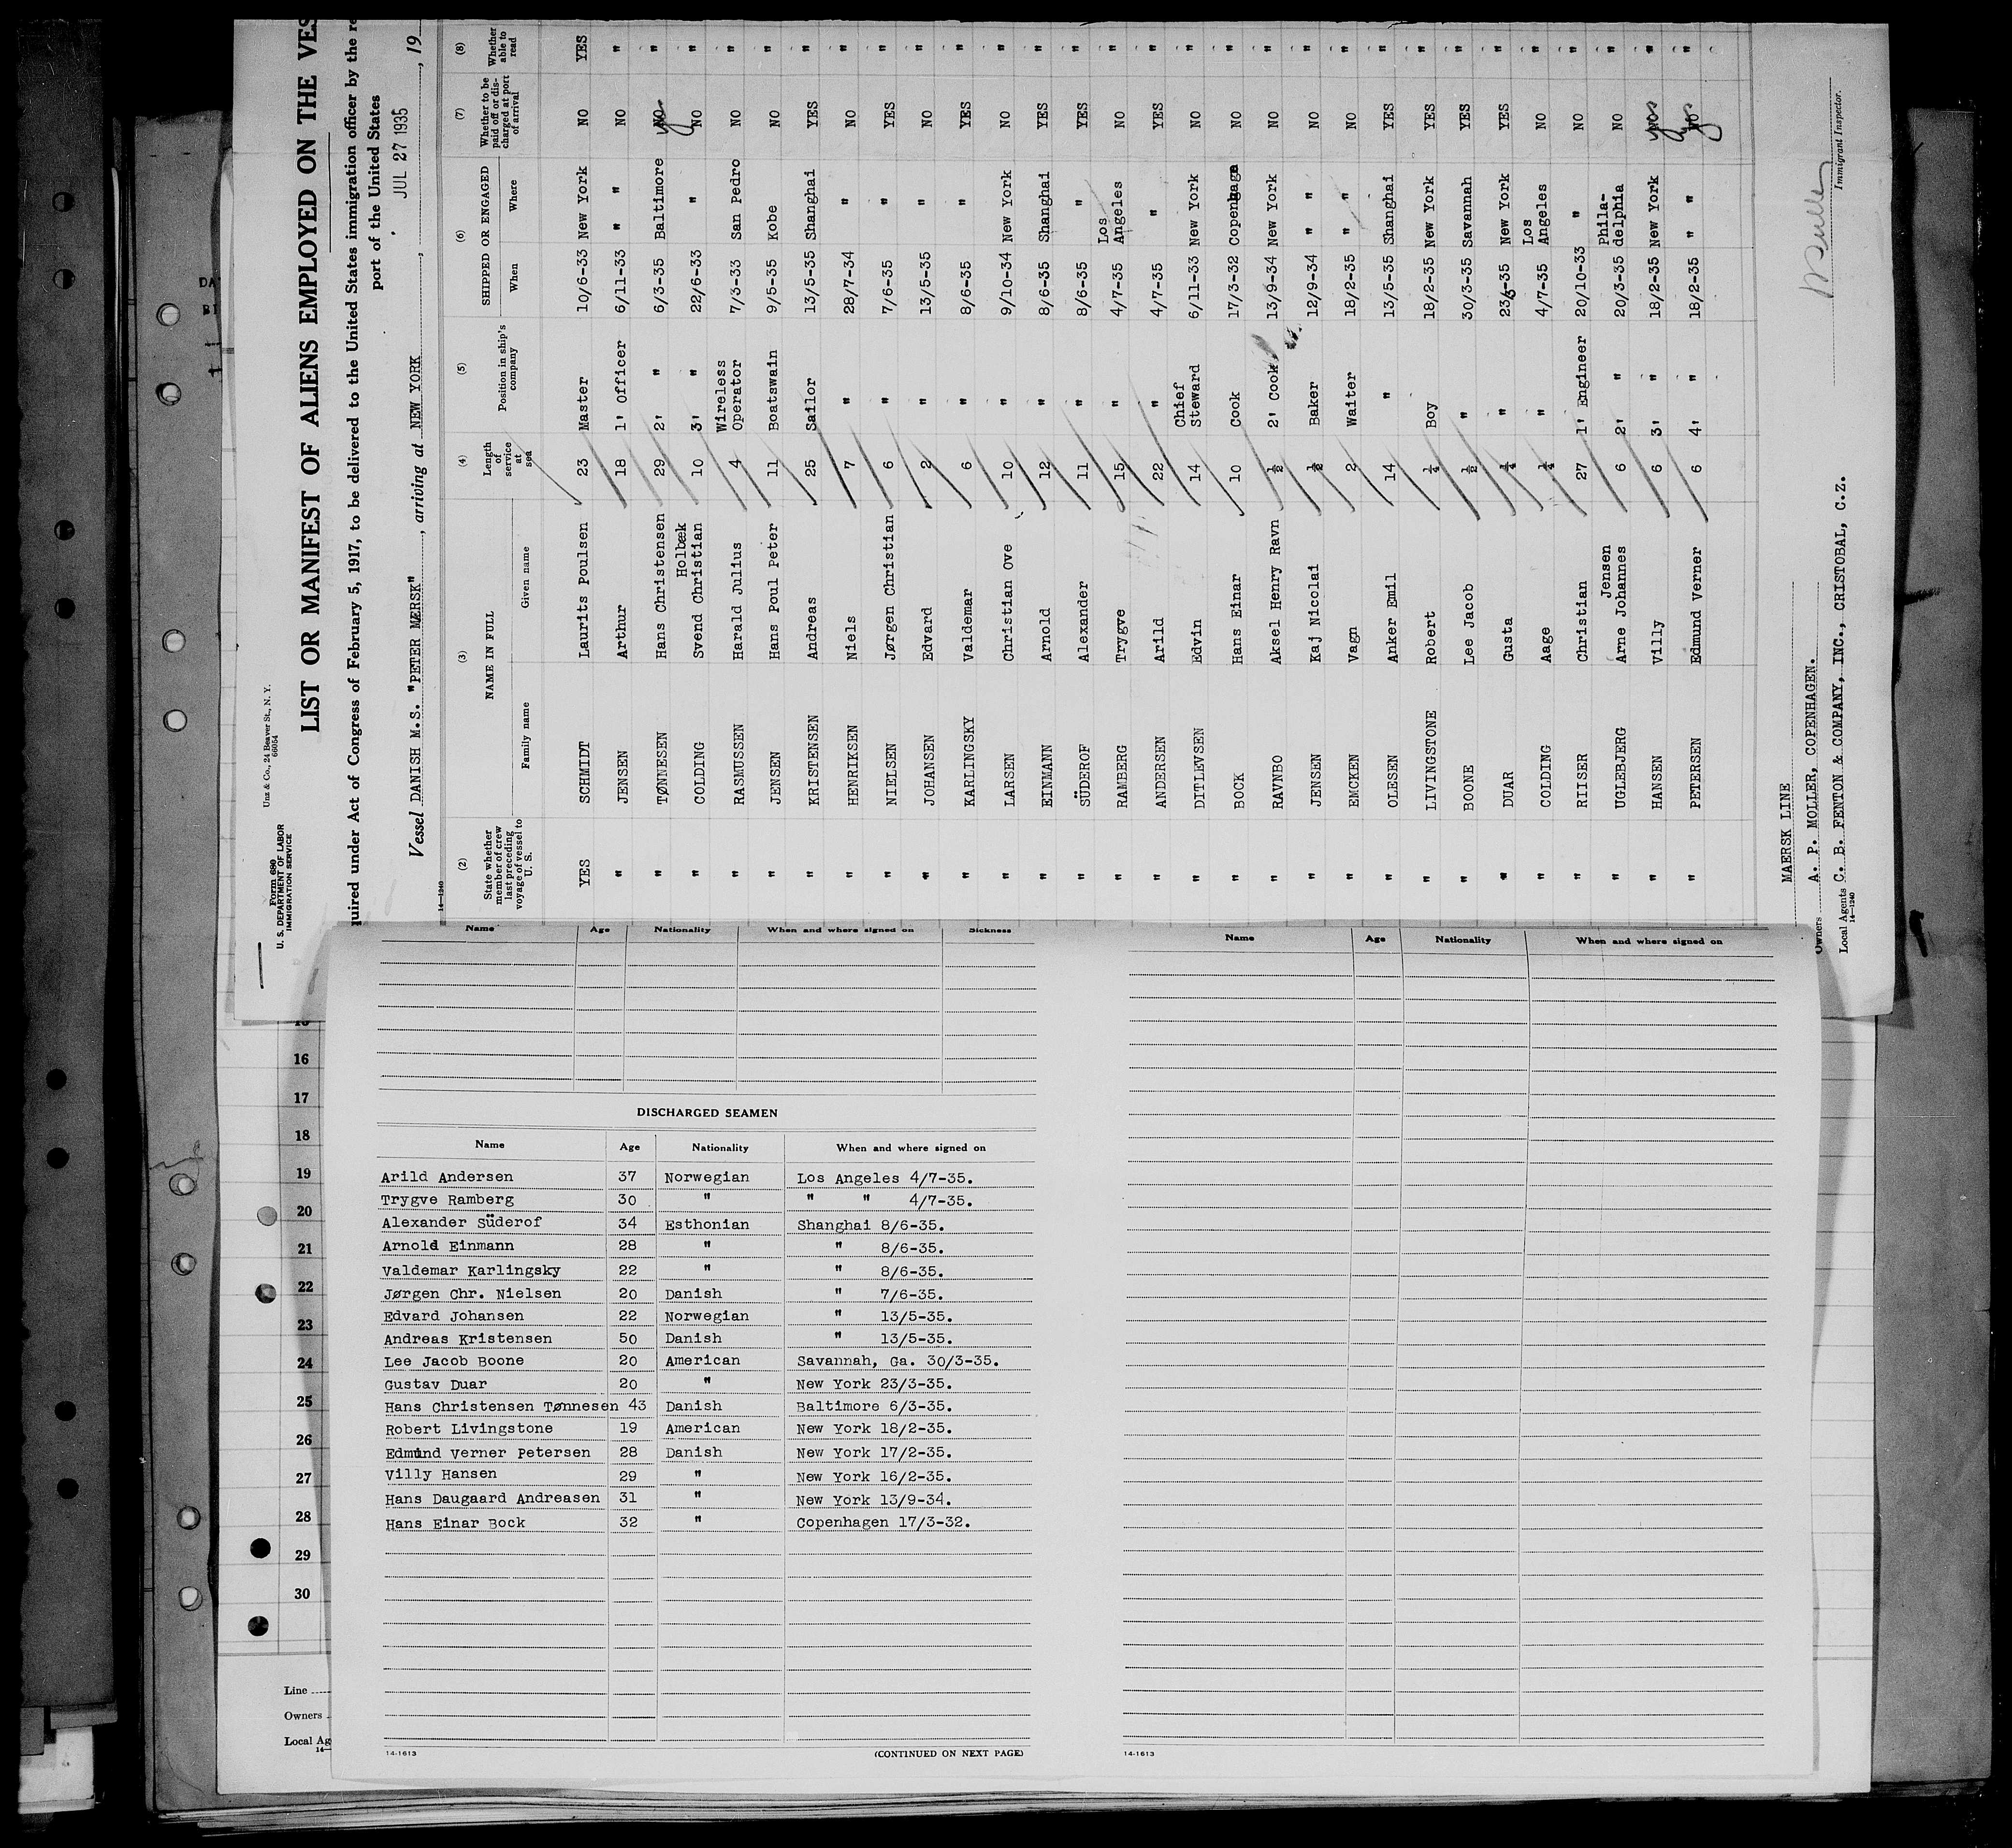 Form 680
U. S. DEPARTMENT OF LABOR
IMMIGRATION SERVICE
Unz & Co., 24 Beaver St., N. Y.
66054
LIST OR MANIFEST OF ALIENS EMPLOYED ON THE VES
quired under Act of Congress of February 5, 1917, to be delivered to the United States immigration officer by the re
port of the United States
Vessel DANISH M.S. "PETER MÆRSK", arriving at NEW YORK, JUL 27 1935, 19
14-1240
(2) (3) (4) (5) (6) (7) (8)
State whether member of crew last preceding voyage of vessel to U. S. | NAME IN FULL | Family name | Given name | Length of service at sea | Position in ship's company | SHIPPED OR ENGAGED | When | Where | Whether to be paid off or discharged at port of arrival | Whether able to read
YES SCHMIDT Laurits Poulsen 23 Master 10/6-33 New York NO YES
" JENSEN Arthur 18 1' Officer 6/11-33 " " NO "
" TØNNESEN Hans Christensen 29 2' " 6/3-35 Baltimore NO yes "
" COLDING Holbæk Svend Christian 10 3' " 22/6-33 " NO "
" RASMUSSEN Harald Julius 4 Wireless Operator 7/3-33 San Pedro NO "
" JENSEN Hans Poul Peter 11 Boatswain 9/5-35 Kobe NO "
" KRISTENSEN Andreas 25 Sailor 13/5-35 Shanghai YES "
" HENRIKSEN Niels 7 " 28/7-34 " NO "
" NIELSEN Jørgen Christian 6 " 7/6-35 " YES "
" JOHANSEN Edvard 2 " 13/5-35 " NO "
" KARLINGSKY Valdemar 6 " 8/6-35 " YES "
" LARSEN Christian Ove 10 " 9/10-34 New York NO "
" EINMANN Arnold 12 " 8/6-35 Shanghai YES "
" SÜDEROF Alexander 11 " 8/6-35 " YES "
" RAMBERG Trygve 15 " 4/7-35 Los Angeles NO "
" ANDERSEN Arild 22 " 4/7-35 " YES "
" DITLEVSEN Edvin 14 Chief Steward 6/11-33 New York NO "
" BOCK Hans Einar 10 Cook 17/3-32 Copenhagen NO "
" RAVNBO Aksel Henry Ravn ½ 2' Cook 13/9-34 New York NO "
" JENSEN Kaj Nicolai ½ Baker 12/9-34 " " NO "
" EMCKEN Vagn 2 Waiter 18/2-35 " " NO "
" OLESEN Anker Emil 14 " 13/5-35 Shanghai YES "
" LIVINGSTONE Robert ¼ Boy 18/2-35 New York YES "
" BOONE Lee Jacob ½ " 30/3-35 Savannah YES "
" DUAR Gusta ¼ " 23/3-35 New York YES "
" COLDING Aage ¼ " 4/7-35 Los Angeles NO "
" RIISER Christian 27 1' Engineer 20/10-33 " NO "
" UGLEBJERG Jensen Arne Johannes 6 2' " 20/3-35 Phila-delphia NO "
" HANSEN Villy 6 3' " 18/2-35 New York NO yes "
" PETERSEN Edmund Verner 6 4' " 18/2-35 " " NO yes "
MAERSK LINE
Owners A. P. MOLLER, COPENHAGEN.
Local Agents C. B. FENTON & COMPANY, INC., CRISTOBAL, C.Z.
14-1240
Immigrant Inspector.
Name Age Nationality When and where signed on Sickness
Name Age Nationality When and where signed on
DISCHARGED SEAMEN
Name Age Nationality When and where signed on
Arild Andersen 37 Norwegian Los Angeles 4/7-35.
Trygve Ramberg 30 " " " 4/7-35.
Alexander Süderof 34 Esthonian Shanghai 8/6-35.
Arnold Einmann 28 " " 8/6-35.
Valdemar Karlingsky 22 " " 8/6-35.
Jørgen Chr. Nielsen 20 Danish " 7/6-35.
Edvard Johansen 22 Norwegian " 13/5-35.
Andreas Kristensen 50 Danish " 13/5-35.
Lee Jacob Boone 20 American Savannah, Ga. 30/3-35.
Gustav Duar 20 " New York 23/3-35.
Hans Christensen Tønnesen 43 Danish Baltimore 6/3-35.
Robert Livingstone 19 American New York 18/2-35.
Edmund Verner Petersen 28 Danish New York 17/2-35.
Villy Hansen 29 " New York 16/2-35.
Hans Daugaard Andreasen 31 " New York 13/9-34.
Hans Einar Bock 32 " Copenhagen 17/3-32.
14-1613
(CONTINUED ON NEXT PAGE)
14-1613
16
17
18
19
20
21
22
23
24
25
26
27
28
29
30
Line
Owners
Local Ag
14-